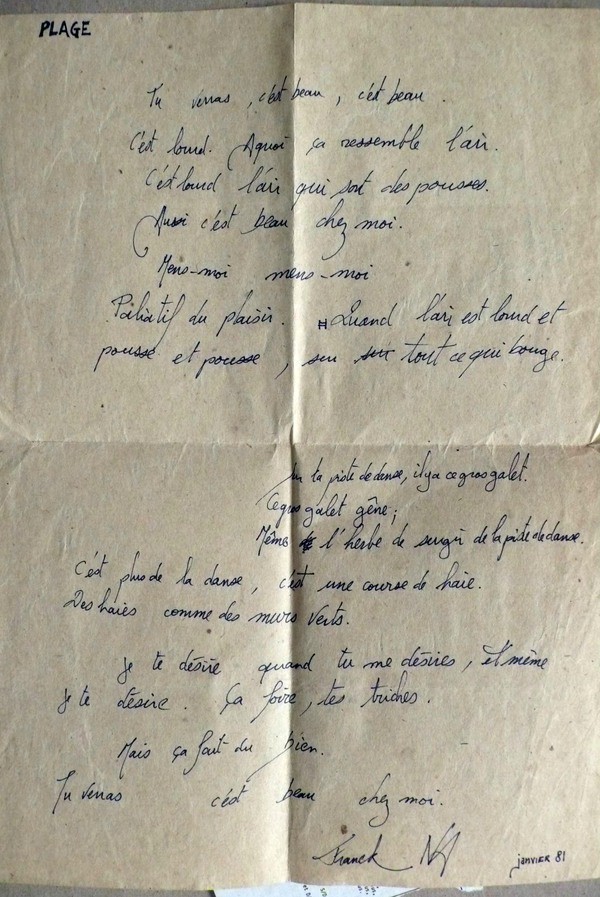 PLAGE
Tu verras, c'est beau, c'est beau.
C'est lourd. Aquoi ça ressemble l'air.
C'est lourd l'air qui sort des pousses.
Aussi c'est beau chez moi.
Mens-moi mens-moi
Paliatif du plaisir. Quand l'air est lourd et
pousse et pousse, sur tout ce qui bouge.
Sur ta piste de danse, il y a ce gros galet.
Ce gros galet gêne;
Même l'herbe de surgir de la piste de danse.
C'est plus de la danse, c'est une course de haie.
Des haies comme des murs verts.
Je te désire quand tu me désires, Et même
Je te désire. Ça foire, tes triches.
Mais ça fait du bien.
Tu verras c'est beau chez moi.
Franck
janvier 81